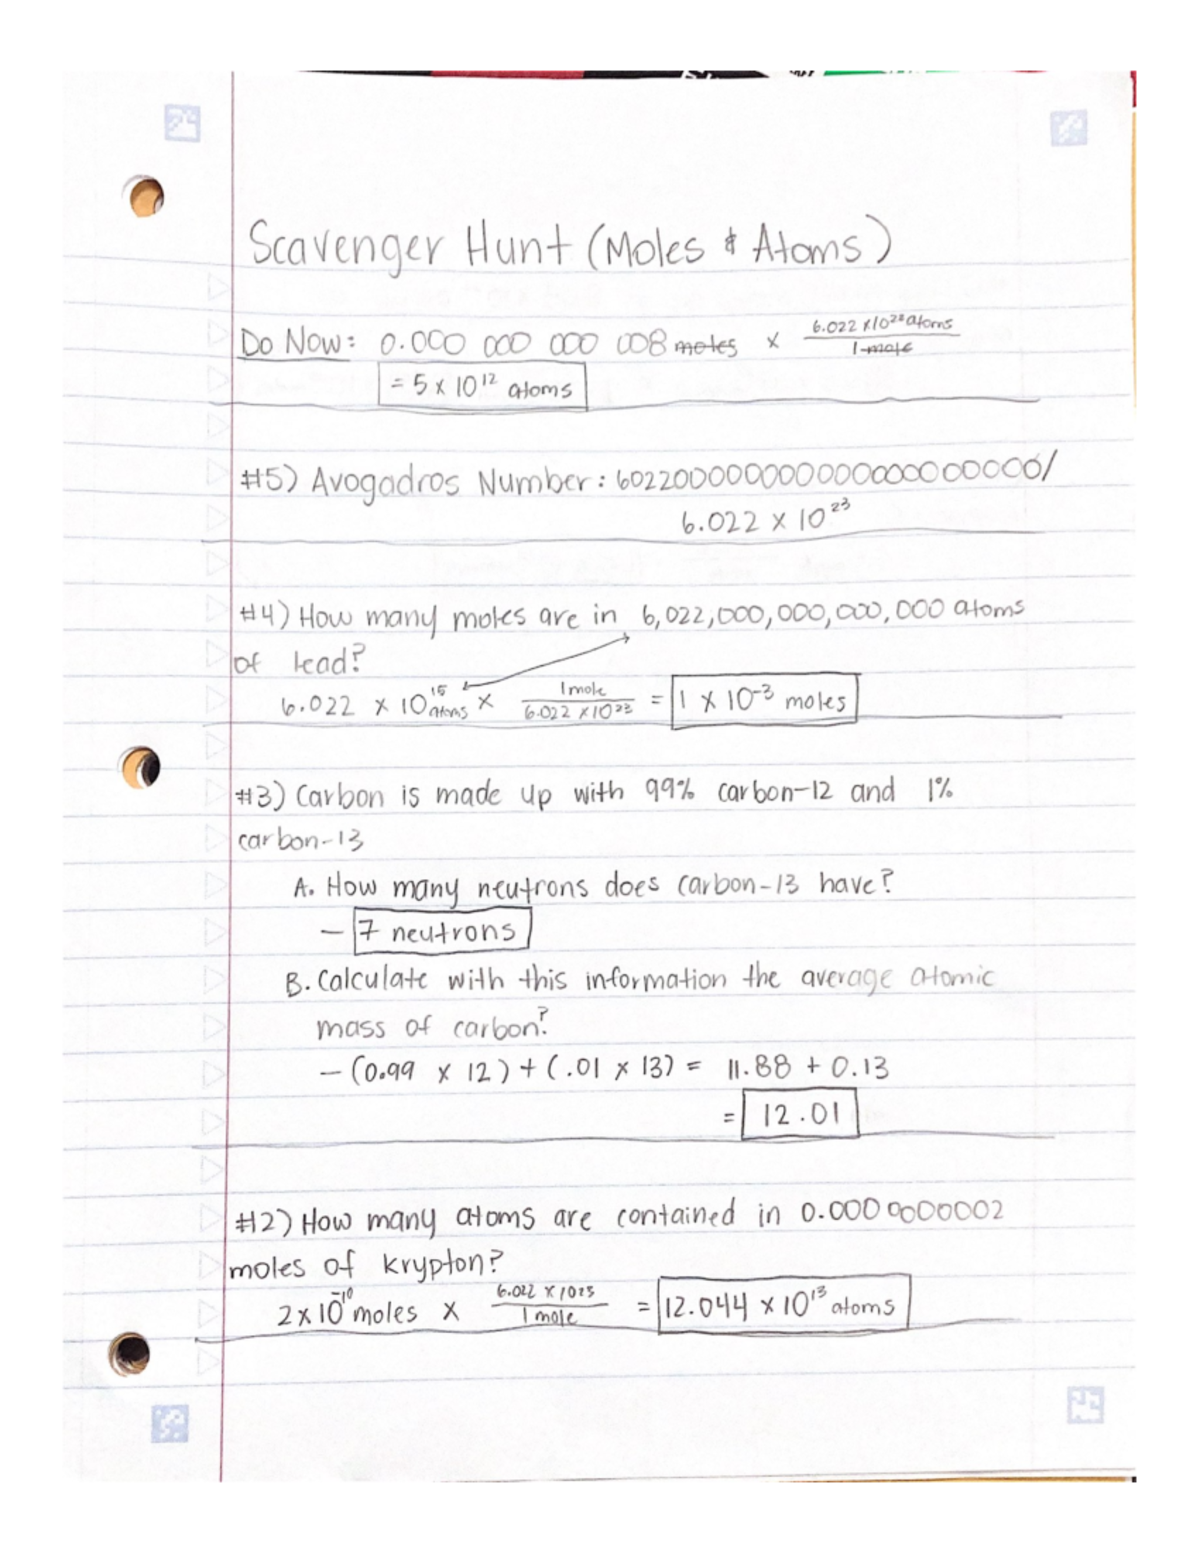 Scavenger Hunt (Moles & Atoms)
Do Now: 0.000 000 000 008 moles × 6.022 x10²³ atoms / 1 mole
= 5 x 10¹² atoms
#5) Avogadros Number: 602200000000000000000000/
6.022 x 10²³
#4) How many moles are in 6,022,000,000,000,000 atoms
of lead?
6.022 x 10¹⁵ atoms x 1 mole / 6.022 x 10²³ = 1 x 10⁻³ moles
#3) Carbon is made up with 99% carbon-12 and 1%
carbon-13
A. How many neutrons does carbon-13 have?
- 7 neutrons
B. Calculate with this information the average atomic
mass of carbon?
- (0.99 x 12) + (.01 x 13) = 11.88 + 0.13
= 12.01
#2) How many atoms are contained in 0.0000000002
moles of krypton?
2x10⁻¹⁰ moles x 6.022 x 1023 / 1 mole = 12.044 x 10¹³ atoms